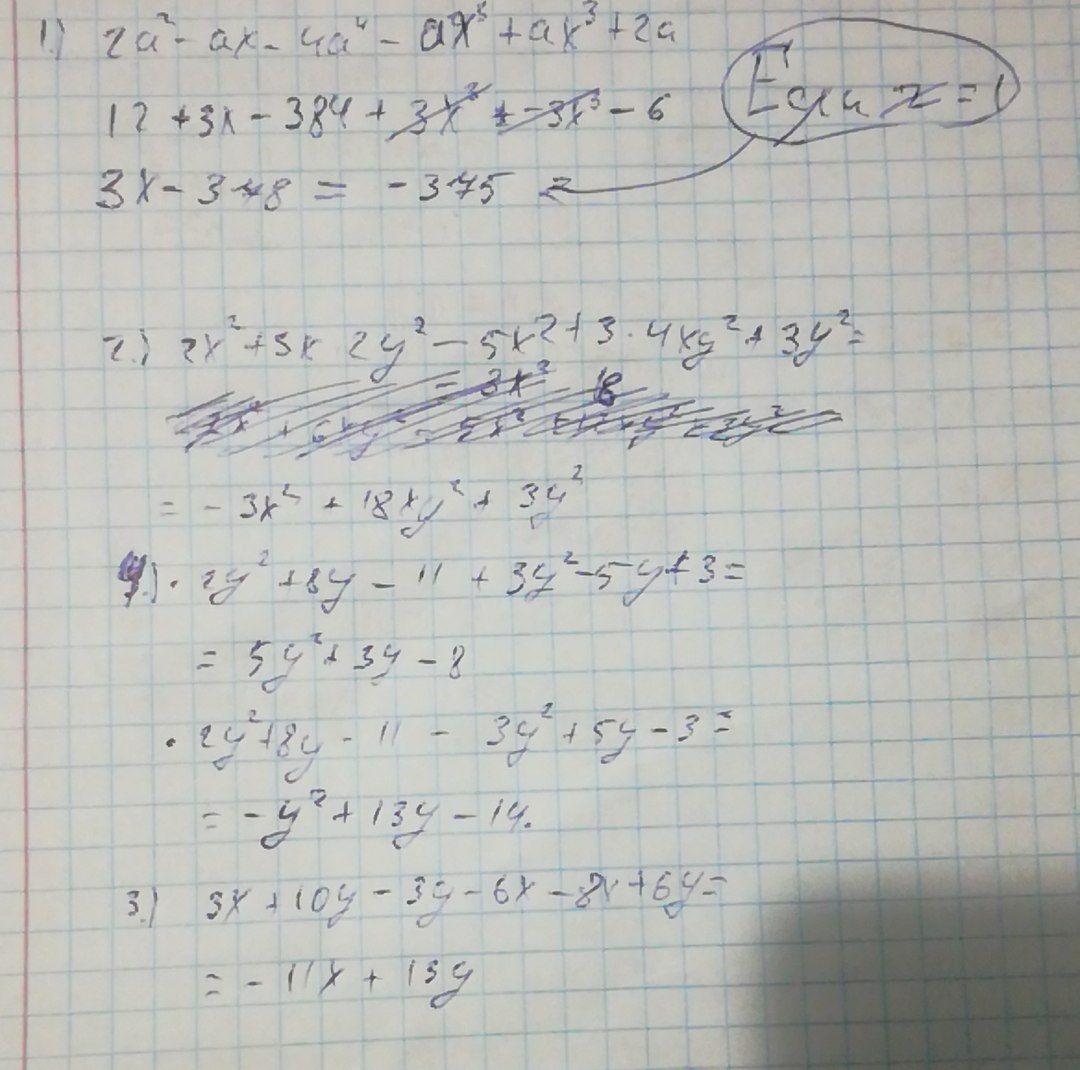 1.) 2a² - ax - 4a⁴ - ax³ + ax³ + 2a
12 + 3x - 384 + 3x³ + -3x³ - 6
Если x = 1
3x - 378 = -375 =
2.) 2x² + 3x 2y² - 5x² + 3 · 4xy² + 3y² =
= -3x² + 18xy² + 3y²
4.) · 2y² + 8y - 11 + 3y² - 5y + 3 =
= 5y² + 3y - 8
· 2y² + 8y - 11 - 3y² + 5y - 3 =
= -y² + 13y - 14.
3.) 3x + 10y - 3y - 6x - 8x + 6y =
= -11x + 13y